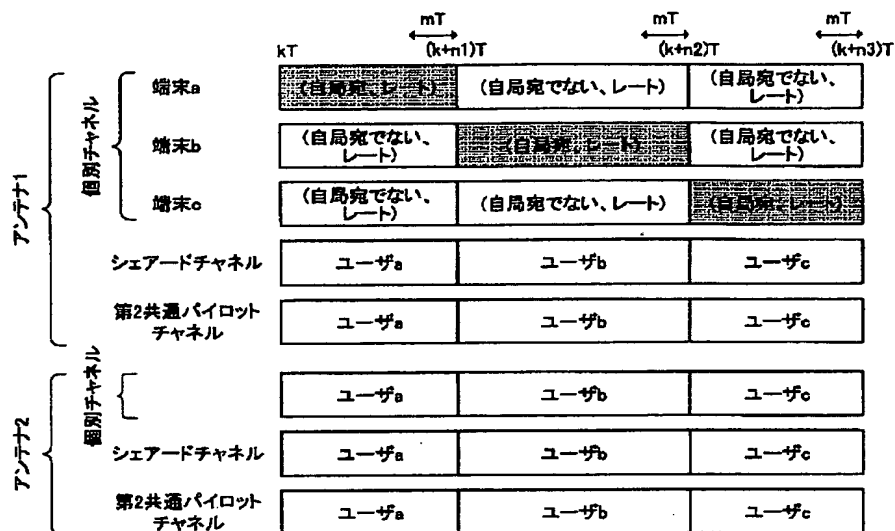 mT mT mT
kT (k+n1)T (k+n2)T (k+n3)T
アンテナ1
個別チャネル
端末a
(自局宛、レート)
(自局宛でない、レート)
(自局宛でない、
レート)
端末b
(自局宛でない、
レート)
(自局宛、レート)
(自局宛でない、
レート)
端末c
(自局宛でない、
レート)
(自局宛でない、レート)
(自局宛、レート)
シェアードチャネル
ユーザa ユーザb ユーザc
第2共通パイロット
チャネル
ユーザa ユーザb ユーザc
アンテナ2
個別チャネル
ユーザa ユーザb ユーザc
シェアードチャネル
ユーザa ユーザb ユーザc
第2共通パイロット
チャネル
ユーザa ユーザb ユーザc